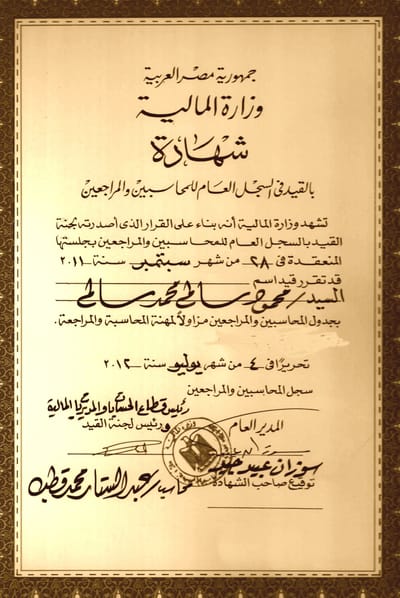 جمهورية مصر العربية
وزارة المالية
شهادة
بالقيد في السجل العام للمحاسبين والمراجعين
تشهد وزارة المالية أنه بناء على القرار الذى أصدرته لجنة
القيد بالسجل العام للمحاسبين والمراجعين بجلستها
المنعقدة في ٢٨ من شهر سبتمبر سنة ٢٠١١
قد تقرر قيد اسم
السيد/ محمود سالم محمد سالم
بجدول المحاسبين والمراجعين مزاولاً لمهنة المحاسبة والمراجعة.
تحريرًا في ٤ من شهر يوليو سنة ٢٠١٢
سجل المحاسبين والمراجعين
رئيس قطاع الحسابات والمديريات المالية
المدير العام
ورئيس لجنة القيد
سوزان عبيد
محاسب/ عبد الستار محمد قطب
توقيع صاحب الشهادة